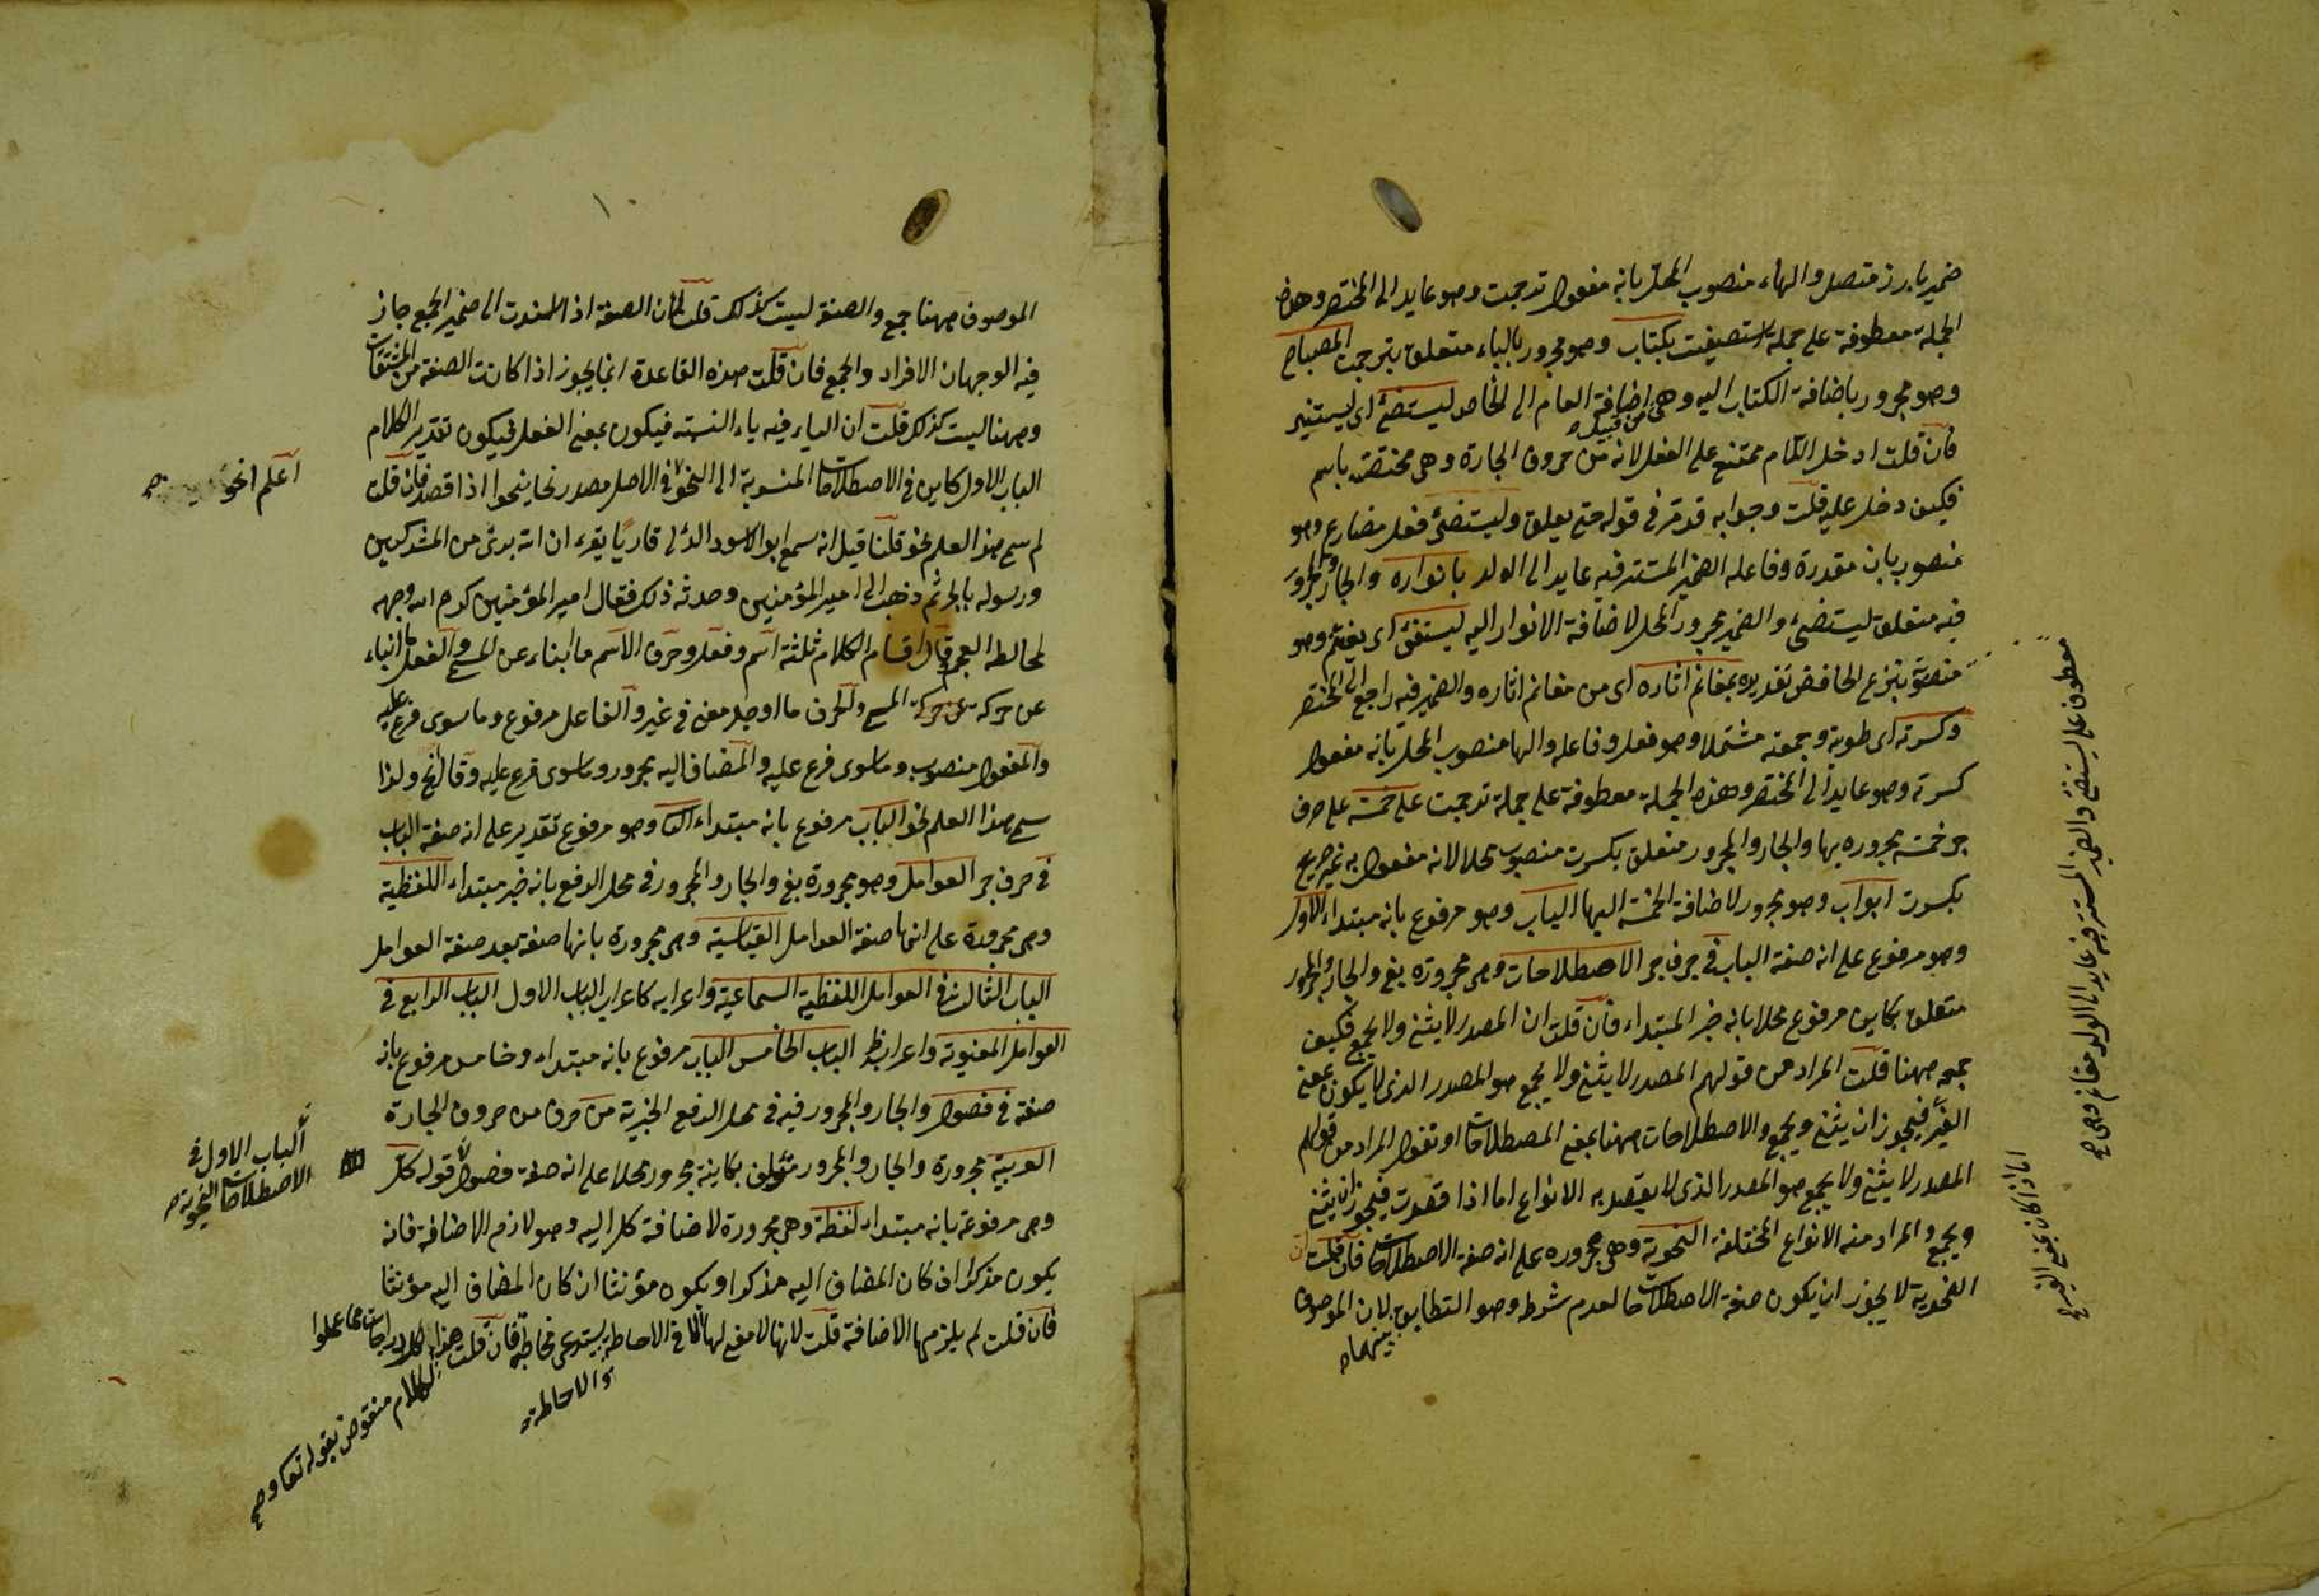 ضمير بارز متصل والهاء منصوب المحل بانه مفعول ترجمت وهو عايد الى المختصر وهذه
الجملة معطوفة على جملة استصفيت بكتاب وهو مجرور بالباء متعلق بترجمت المصباح
وهو مجرور باضافة الكتاب اليه وهى من قبيل اضافة العام الى الخاص ليستضئ اى ليستنير
فان قلت ادخل اللام ممتنع على الفعل لانه من حروف الجارة وهى مختصة باسم
فكيف دخل عليه قلت وجوابه قد مر فى قوله حتى يعلق وليستضئ فعل مضارع وهو
منصوب بان مقدرة وفاعله الضمير المستتر فيه عايد الى الولد بانواره والجار والمجرور
فيه متعلق ليستضئ والضمير مجرور المحل لاضافة الانوار اليه ليستفئ اى يغتنم وهو
منصوبة بنزع الخافض تقديره بمغانم اثاره اى من مغانم اثاره والضمير فيه راجع الى المختصر
وكسرته اى طويته وجمعته مشتملا وهو فعل وفاعله والها منصوب المحل بانه مفعول
كسرته وهو عايد الى المختصر وهذه الجملة معطوفة على جملة ترجمت على خمسة على حرف
جر خمسة مجروره بها والجار والمجرور متعلق بكسرت منصوب محلا لانه مفعول به غير صريح
بكسرت ابواب وهو مجرور لاضافة الخمسة اليها الباب وهو مرفوع بانه مبتداء الاول
وهو مرفوع على انه صفة الباب فى حرف جر الاصطلاحات وهى مجرورة بفى والجار والمجرور
متعلق بكاين مرفوع محلا بانه خبر المبتداء فان قلت ان المصدر لا يثنى ولا يجمع فكيف
جمعه صهنا قلت المراد من قولهم المصدر لا يثنى ولا يجمع هو المصدر الذى لا يكون بمعنى
الغير فيجوز ان يثنى ويجمع والاصطلاحات صهنا بمعنى المصطلاحات او تقول المراد من قولهم
المصدر لا يثنى ولا يجمع هو المصدر الذى لا يقصد به الانواع اما اذا قصدت فيجوز ان يثنى
ويجمع والمراد منه الانواع المختلفة النحوية وهى مجروره على انه صفة الاصطلاحات فان قلت ان
النحوية لا يجوز ان يكون صفة الاصطلاحات لعدم شرط وهو التطابق بينهما لان الموصوف
معطوف على ليستضئ والضمير المستتر فيه عايد الى الولد مغانم وهى
اما اذا كان بمعنى الغير
الموصوف صهنا جمع والصفة ليست كذلك قلت لان الصفة اذا اسندت الى ضمير الجمع جاز
فيه الوجهان الافراد والجمع فان قلت هذه القاعدة انما يجوز اذا كانت الصفة من المشتقات
وصهنا ليست كذلك قلت ان الياء فيه ياء النسبة فيكون بمعنى الفعل فيكون تقدير الكلام
الباب الاول كاين فى الاصطلاحات المنسوبة الى النحو فى الاصل مصدر نحا ينحوا اذا قصد فان قلت
لم سمى هذا العلم نحو قلنا قيل انه سمع ابو الاسود الدئلى قاريًا يقرء ان الله برئ من المشركين
ورسوله بالجر ثم ذهب الى امير المؤمنين وحدثه ذلك فقال امير المؤمنين كرم الله وجهه
لمخالطه العجم وقال اقسام الكلام ثلثة اسم وفعل وحرف الاسم ما انباء عن المسمى والفعل ما انباء
عن حركة المسمى والحرف ما اوجد معنى فى غير والفاعل مرفوع وما سوى فرع عليه
والمفعول منصوب وما سوى فرع عليه والمضاف اليه مجرور وما سوى فرع عليه وقال انح ولذا
سمى هذا العلم نحو الباب مرفوع بانه مبتداء الثانى وهو مرفوع تقدير على انه صفة الباب
فى حرف جر العوامل وهو مجرورة بفى والجار والمجرور فى محل الرفع بانه خبر مبتداء اللفظية
وهى مجرورة على انها صفة العوامل القياسية وهى مجرورة بانها صفة بعد صفة العوامل
الباب الثالث فى العوامل اللفظية السماعية واعرابه كاعراب الباب الاول الباب الرابع فى
العوامل المعنوية واعرابه ظ الباب الخامس الباب مرفوع بانه مبتداء وخامس مرفوع بانه
صفة فى فصول والجار والمجرور فيه فى محل الرفع الخبرية من حرف من حروف الجارة
العربية مجرورة والجار والمجرور متعلق بكاينة مجرور محلا على انه صفة فصول قوله كل
وهى مرفوعة بانه مبتداء لفظة وهى مجرورة لاضافة كل اليه وهو لازم الاضافة فانه
يكون مذكرا ان كان المضاف اليه مذكرا ويكون مؤنثا ان كان المضاف اليه مؤنثا
فان قلت لم يلزمها الاضافة قلت لانها لا معنى لها الا فى الاحاطة والاحاطة يستدعى محاطبه فان قلت هذا الكلام منقوض بقوله تعا وكل درجات مما عملوا
اعلم انحو
الباب الاول فى
الاصطلاحات النحوية